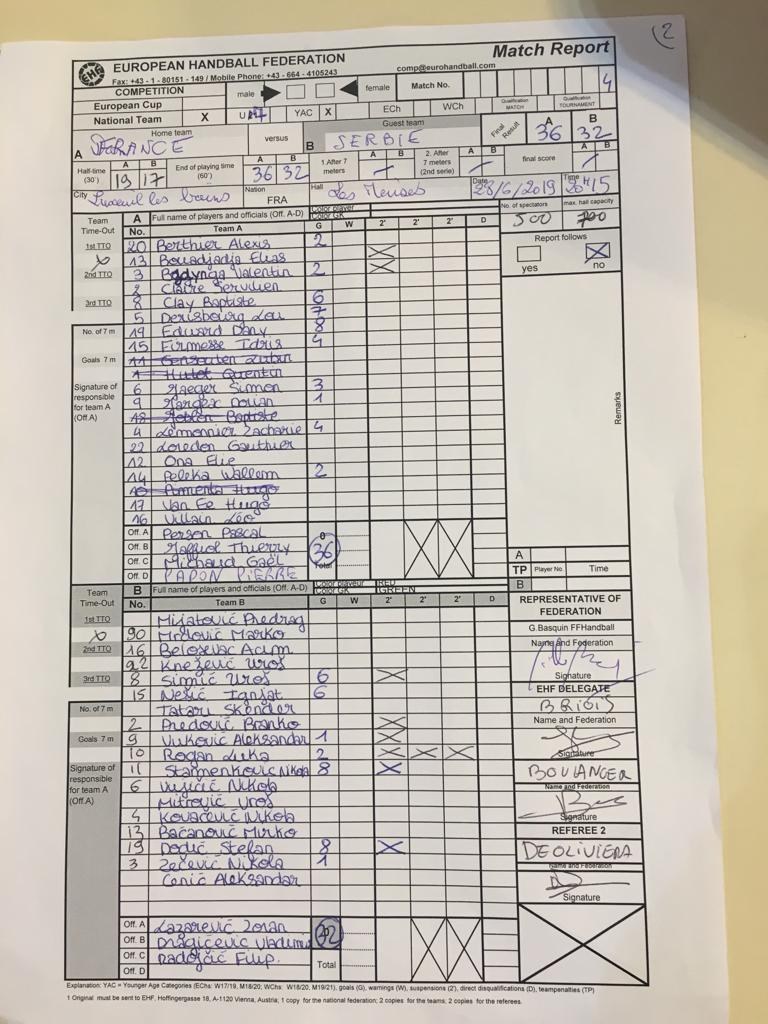 2
EUROPEAN HANDBALL FEDERATION
Match Report
Fax: +43 - 1 - 80151 - 149 / Mobile Phone: +43 - 664 - 4105243
comp@eurohandball.com
COMPETITION male female Match No. 4
European Cup
National Team X YAC X ECh WCh Qualification MATCH Qualification TOURNAMENT
Home team versus Guest team Final Result A B
A FRANCE B SERBIE 36 32
Half-time (30') A B 19 17 End of playing time (60') A B 36 32 1.After 7 meters A B 2. After 7 meters (2nd serie) A B final score A B
City Luxeuil les bains Nation FRA Hall Les Merises Date 28/6/2019 Time 20H15
No. of spectators 500 max. hall capacity 700
Team Time-Out A Full name of players and officials (Off. A-D) Color player Color GK
No. Team A G W 2' 2' 2' D
Report follows
yes no
1st TTO
2nd TTO
3rd TTO
20 Berthier Alexis 2
13 Bouadjadja Elias
3 Valentin 2
2 Claire Servilien
8 Clay Baptiste 6
5 Derisbourg Lou 7
19 Edward Dany 8
15 Firmesse Idris 4
11
1 Hutot Quentin
6 Jaeger Simon 3
9 Margex Dorian 1
18 Baptiste
4 Lemonnier Zacharie 4
22 Loredon Gauthier
12 Ona Elie
14 Peleka Wallem 2
10 Pimenta Hugo
17 Van Ee Hugo
16 Villain Léo
No. of 7 m
Goals 7 m
Signature of responsible for team A (Off.A)
Remarks
Off. A Person Pascal
Off. B Thierry 36
Off. C Michaud Gaël Total
Off. D PAPON PIERRE
A
TP Player No. Time
B
Team Time-Out B Full name of players and officials (Off. A-D) Color player RED
Color GK GREEN
No. Team B G W 2' 2' 2' D
1st TTO
2nd TTO
3rd TTO
Mijatović Predrag
90 Mrdović Marko
16 Beloševac Aćim
92 Knežević Uroš
8 Simić Uroš 6
15 Nešić Ignjat 6
Tataru Skender
2 Predović Branko
9 Vuković Aleksandar 1
10 Rogan Luka 2
11 Stamenković Nikola 8
6 Vujičić Nikola
Mitrović Uroš
4 Kovačević Nikola
13 Baćanović Mirko
19 Dodić Stefan 8
3 Zečević Nikola 1
Ćenić Aleksandar
No. of 7 m
Goals 7 m
Signature of responsible for team A (Off.A)
Off. A Lazarević Zoran
Off. B Dragićević Vladimir 32
Off. C Radojčić Filip.
Off. D Total
REPRESENTATIVE OF FEDERATION
G.Basquin FFHandball
Name and Federation
Signature
EHF DELEGATE
BRIOIS
Name and Federation
Signature
BOULANGER
Name and Federation
Signature
REFEREE 2
DEOLIVIERA
Name and Federation
Signature
Explanation: YAC = Younger Age Categories (EChs: W17/19, M18/20; WChs: W18/20, M19/21), goals (G), warnings (W), suspensions (2'), direct disqualifications (D), teampenalties (TP)
1 Original must be sent to EHF, Hoffingergasse 18, A-1120 Vienna, Austria; 1 copy for the national federation; 2 copies for the teams; 2 copies for the referees.